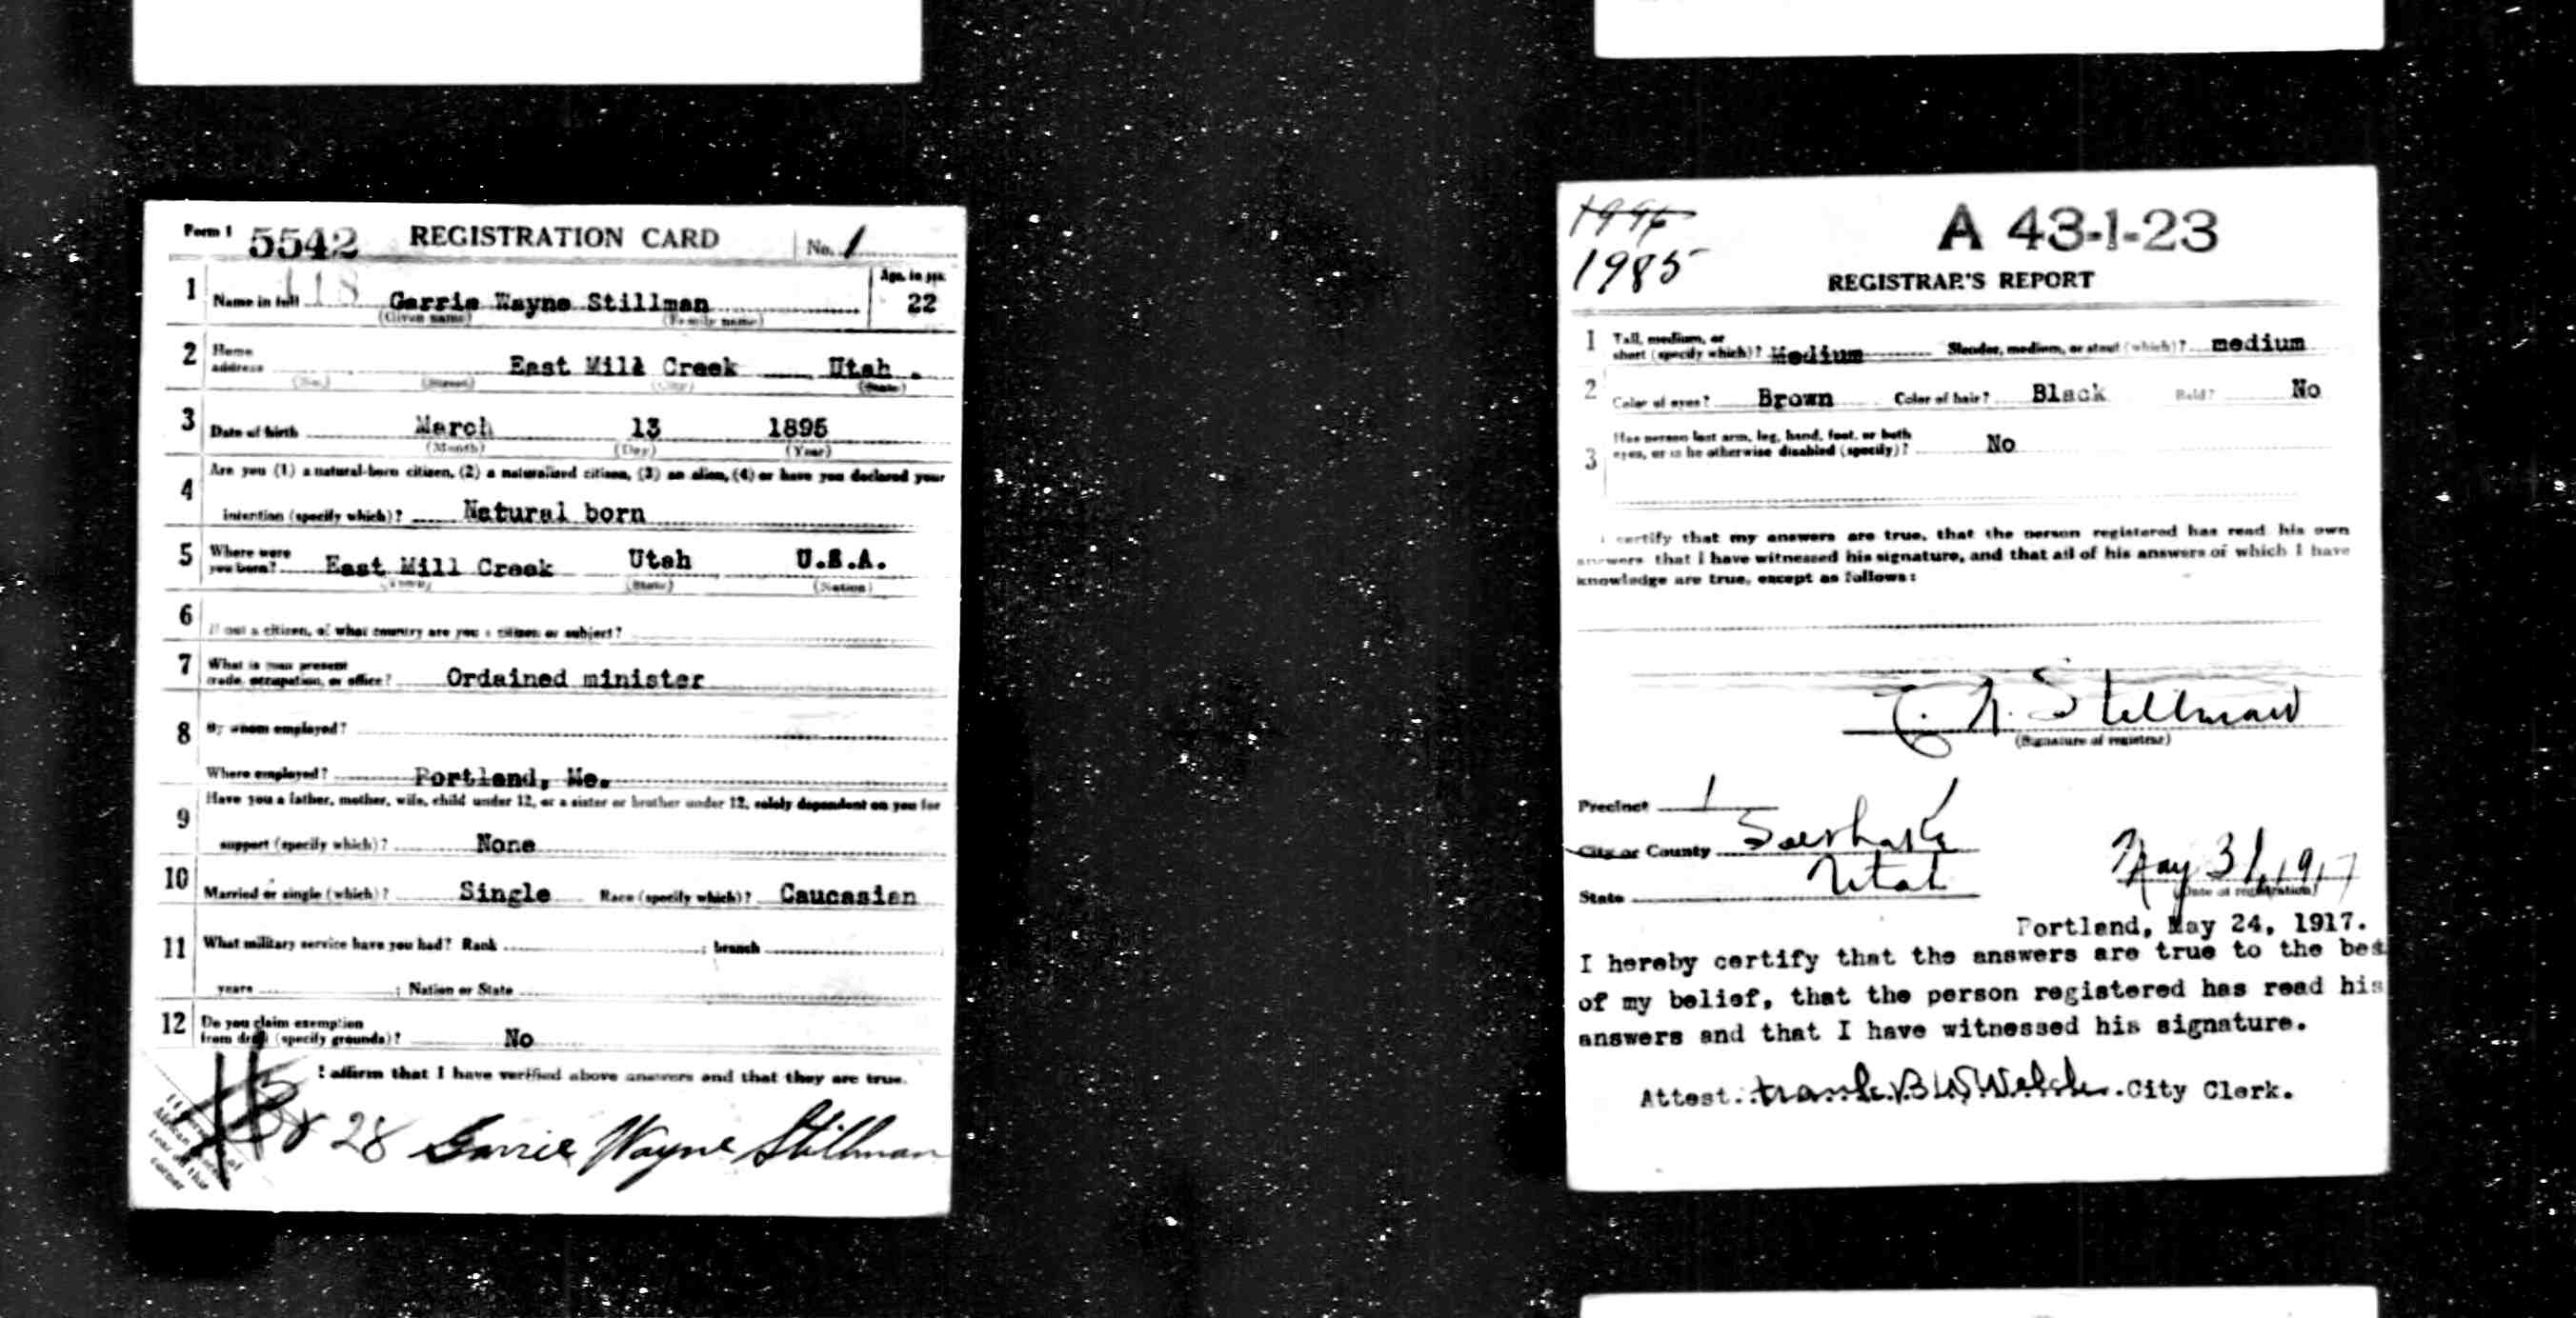 Form 1 5542 REGISTRATION CARD No. 1
118
1 Name in full Garrie Wayne Stillman Age, in yrs. 22
(Given name) (Family name)
2 Home address East Mill Creek Utah.
(No.) (Street) (City) (State)
3 Date of birth March 13 1895
(Month) (Day) (Year)
4 Are you (1) a natural-born citizen, (2) a naturalized citizen, (3) an alien, (4) or have you declared your
intention (specify which)? Natural born
5 Where were you born? East Mill Creek Utah U.S.A.
(Town) (State) (Nation)
6 If not a citizen, of what country are you a citizen or subject?
7 What is your present trade, occupation, or office? Ordained minister
8 By whom employed?
Where employed? Portland, Me.
9 Have you a father, mother, wife, child under 12, or a sister or brother under 12, solely dependent on you for
support (specify which)? None
10 Married or single (which)? Single Race (specify which)? Caucasian
11 What military service have you had? Rank ; branch
years ; Nation or State
12 Do you claim exemption from draft (specify grounds)? No
I affirm that I have verified above answers and that they are true.
28 Garrie Wayne Stillman
corner
1985
A 43-1-23
REGISTRAR'S REPORT
1 Tall, medium, or short (specify which)? Medium Slender, medium, or stout (which)? medium
2 Color of eyes? Brown Color of hair? Black Bald? No
3 Has person lost arm, leg, hand, foot, or both eyes, or is he otherwise disabled (specify)? No
I certify that my answers are true, that the person registered has read his own
answers, that I have witnessed his signature, and that all of his answers of which I have
knowledge are true, except as follows:
Stillman
(Signature of registrar)
Precinct 1
City or County Salt Lake
State Utah
May 31, 1917
(Date of registration)
Portland, May 24, 1917.
I hereby certify that the answers are true to the bes
of my belief, that the person registered has read his
answers and that I have witnessed his signature.
Attest. City Clerk.